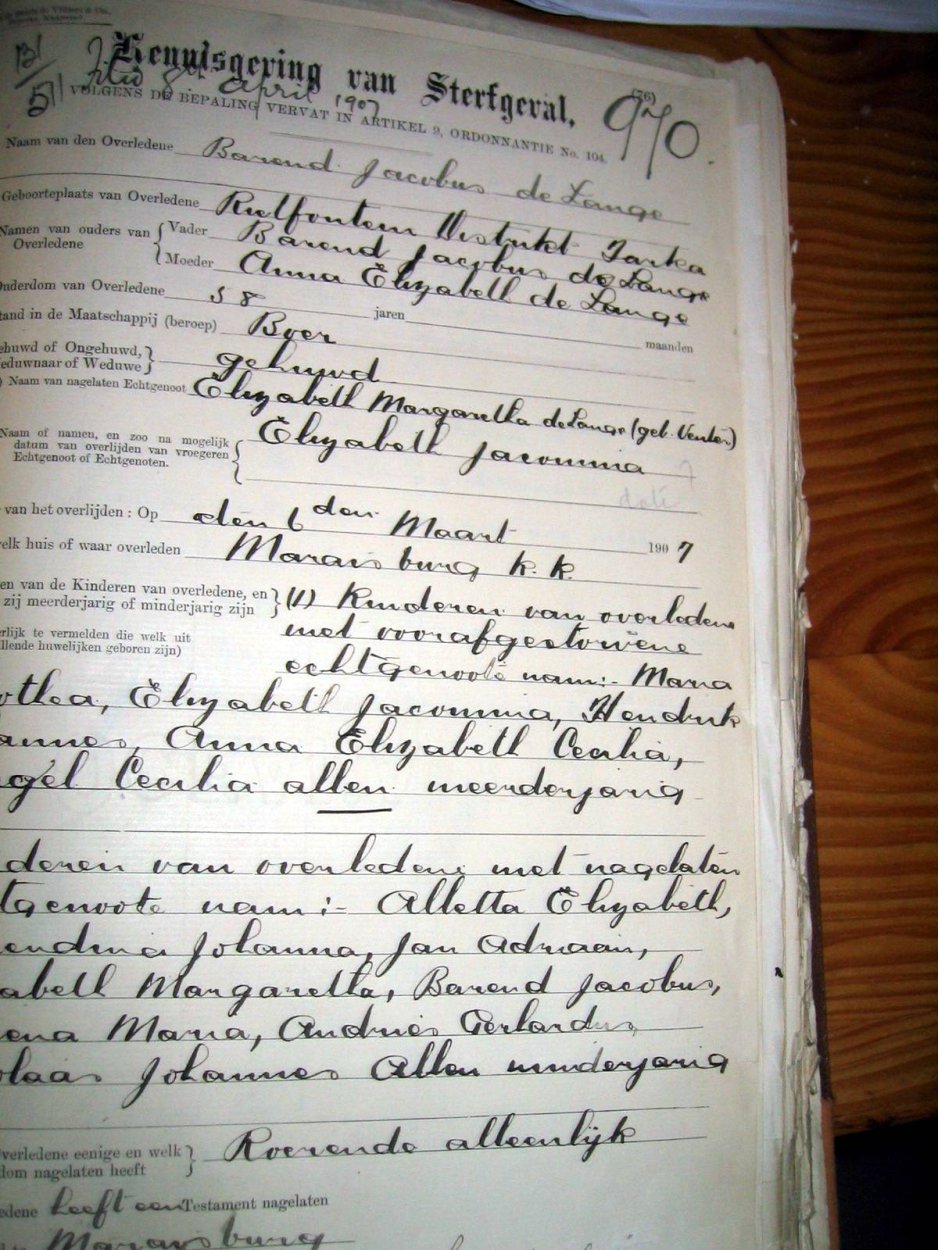 Kennisgeving van Sterfgeval,
(76)
970.
131/51
Filed 8th April 1907
VOLGENS DE BEPALING VERVAT IN ARTIKEL 9, ORDONNANTIE No. 104
Naam van den Overledene Barend Jacobus de Lange
Geboorteplaats van Overledene Rietfontein Distrikt Tarka
Namen van ouders van Overledene { Vader Barend Jacobus de Lange
Moeder Anna Elizabeth de Lange
Ouderdom van Overledene 58 jaren maanden
tand in de Maatschappij (beroep) Boer
ehuwd of Ongehuwd, eduwnaar of Weduwe } gehuwd
) Naam van nagelaten Echtgenoot Elizabeth Margaretha de Lange (geb. Venter)
Naam of namen, en zoo na mogelijk datum van overlijden van vroegeren Echtgenoot of Echtgenoten. { Elizabeth Jacomina ?
date
van het overlijden: Op den 6 den Maart 1907
elk huis of waar overleden Maraisburg k. k.
en van de Kinderen van overledene, en zij meerderjarig of minderjarig zijn } (1) Kinderen van overledene
erlijk te vermelden die welk uit llende huwelijken geboren zijn) met voorafgestorvene
echtgenoote nam:- Maria
othea, Elizabeth Jacomina, Hendrik
annes, Anna Elizabeth Cecilia,
gel Cecilia allen meerderjarig
deren van overledene met nagelaten
tgenoote nam:- Alletta Elizabeth,
endina Johanna, Jan Adriaan,
abeth Margaretha, Barend Jacobus,
ena Maria, Andries Gerhardus,
olaas Johannes Allen minderjarig
Overledene eenige en welk dom nagelaten heeft } Roerende alleenlijk
edene heeft een Testament nagelaten
Maraisburg